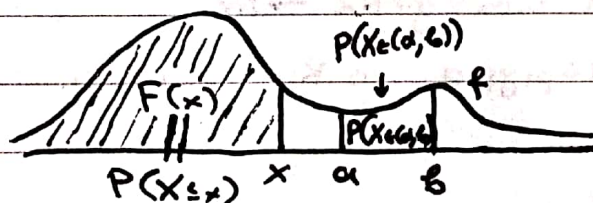 P(X∈(a,b))
↓
F(x) P(X∈(a,b) f
||
P(X≤x) x a b